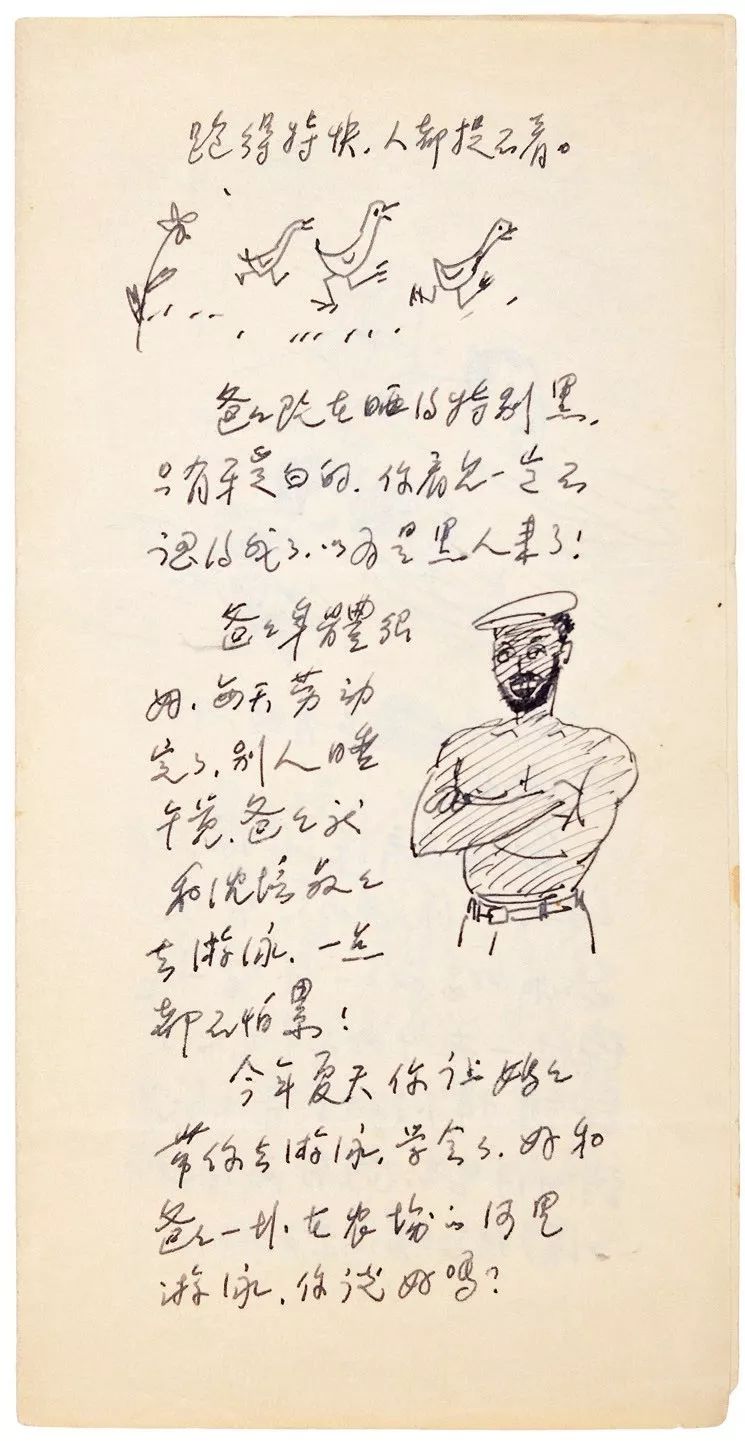 跑得特快，人都捉不着。
爸々现在晒得特别黑，
只有牙是白的，你看见一定不
认得我了，以为是黑人来了！
爸々身體很
好，每天劳动
完了，别人睡
午觉，爸々就
和沈培叔々
去游泳，一点
都不怕累！
今年夏天你让妈々
带你去游泳，学会了，好和
爸々一块在农场的河里
游泳，你说好吗？